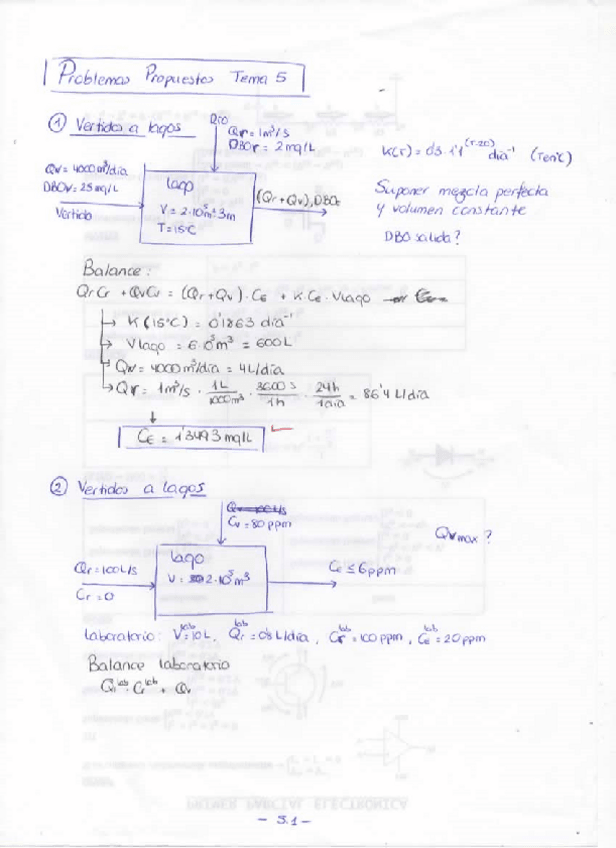 Problemas Propuestos Tema 5
① Vertidos a lagos
Río
Qr = 1m³/s
DBOr = 2 mg/L
K(T) = 0'3·1'1^(T-20) día⁻¹ (T en ºC)
Qv = 4000 m³/día
DBOv = 25 mg/L
Vertido
lago
V = 2·10⁵m²·3m
T = 15ºC
(Qr + Qv), DBOE
Suponer mezcla perfecta
y volumen constante
DBO salida?
Balance:
QrCr + QvCr = (Qr+Qv)·CE + K·CE·Vlago
→ K(15ºC) = 0'1863 día⁻¹
→ Vlago = 6·0⁵m³ = 600L
→ Qv = 4000 m³/día = 4L/día
→ Qr = 1m³/s · 1L/1000m³ · 3600 s/1h · 24h/1día = 86'4 L/día
↓
CE = 1'3493 mg/L
② Vertidos a lagos
Cv = 80 ppm
Qvmax ?
Qr = 100L/s
Cr = 0
lago
V = 2·10⁵m³
CE ≤ 6ppm
Laboratorio: Vlab = 10L, Qrlab = 0'8 L/día, Crlab = 100 ppm, CElab = 20 ppm
Balance laboratorio
Qrlab · Crlab + Qv
PRIMER PARCIAL ELECTRONICA
- 5.1 -